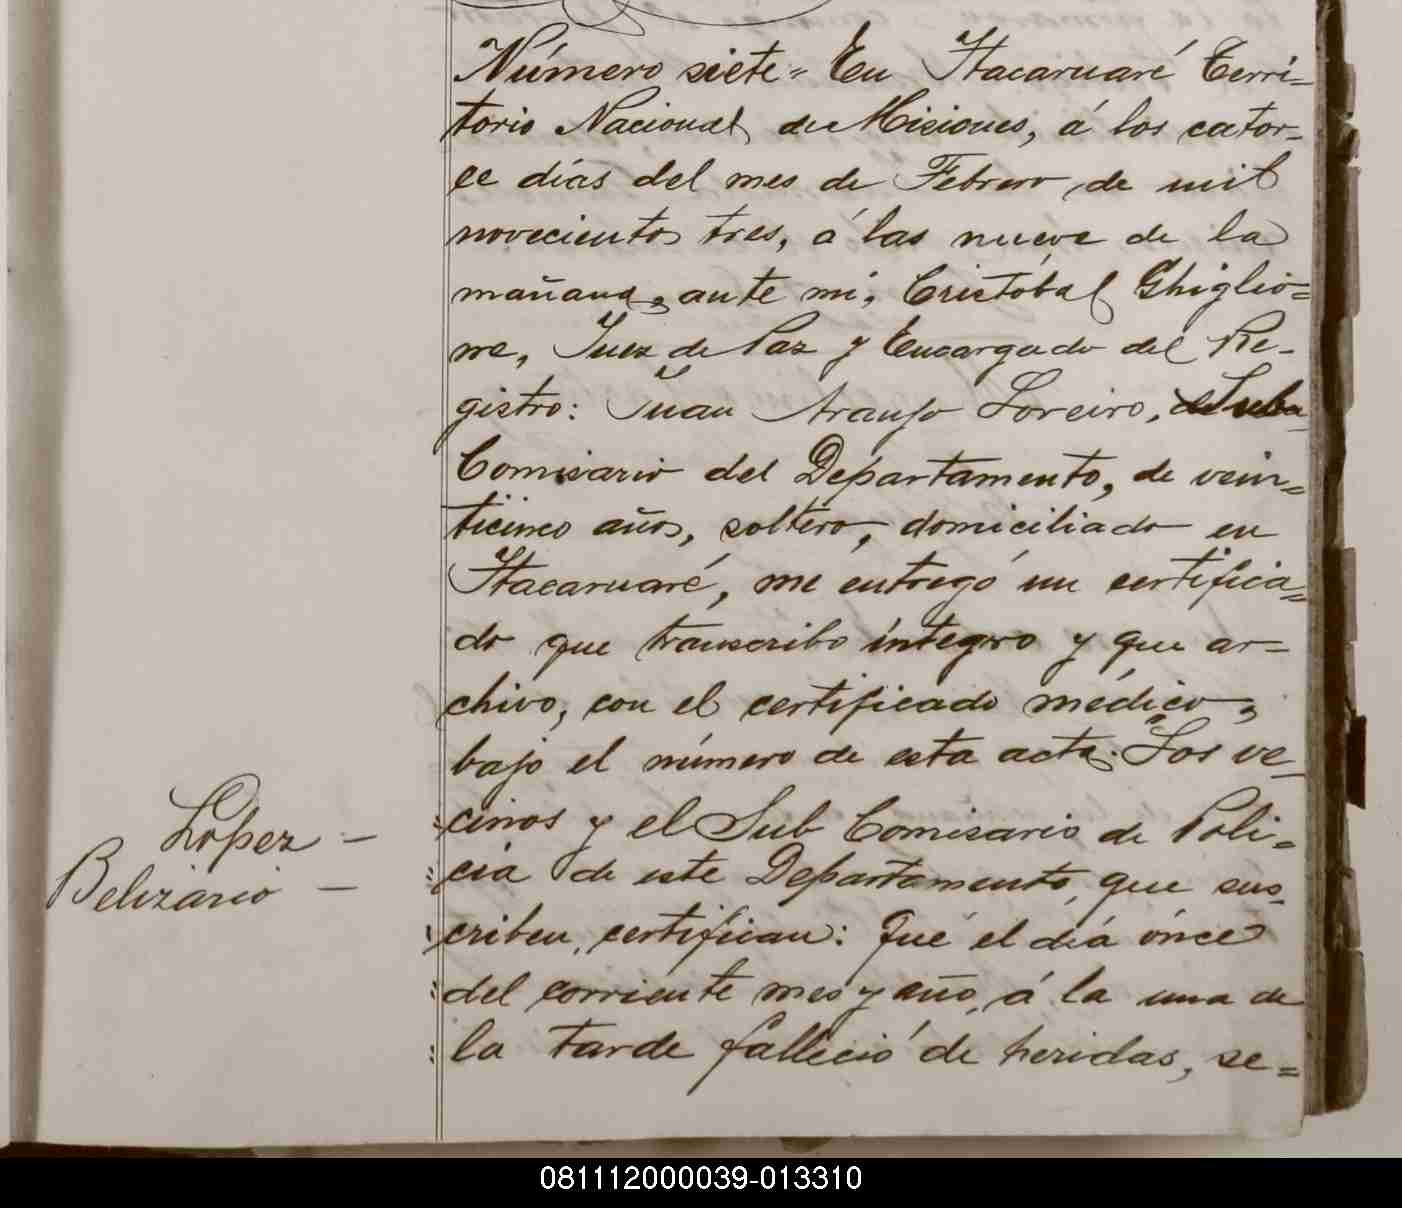 Número siete= En Itacaruaré Terri-
torio Nacional de Misiones, á los cator-
ce días del mes de Febrero de mil
novecientos tres, á las nueve de la
mañana, ante mi, Cristóbal Ghiglio=
ne, Juez de Paz y Encargado del Re-
gistro: Juan Araujo Loreiro, Sub
Comisario del Departamento, de vein=
ticinco años, soltero, domiciliado en
Itacaruaré, me entregó un certifica=
do que transcribo íntegro y que ar=
chivo, con el certificado médico,
bajo el número de esta acta. Los ve-
López —
cinos y el Sub Comisario de Poli=
Belizario —
cia de este Departamento, que sus-
criben, certifican: Qué el día once
del corriente mes y año, á la una de
la tarde falleció de heridas, se=
081112000039-013310